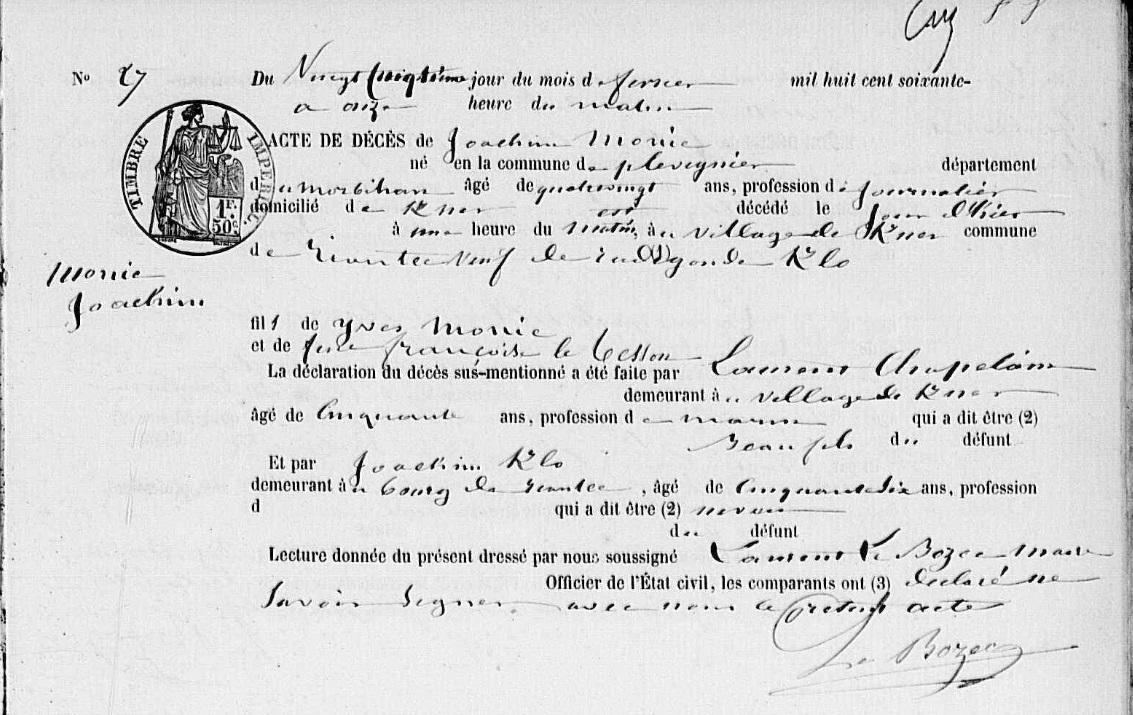 No 27 Du Vingt huitième jour du mois de fevrier mil huit cent soixante-
a onze heure du matin
TIMBRE IMPERIAL
1 F. 50 c.
ACTE DE DÉCÈS de Joachim Monic
né en la commune de plevignier département
du morbihan âgé de quatrevingt ans, profession de Journalier
domicilié de Kner est décédé le Jour d'hier
à une heure du matin, à u village de Kner commune
de riantec veuf de radegonde Klo
Monic
Joachim
fils de Yves Monic
et de feue françoise le tesson
La déclaration du décès sus-mentionné a été faite par Laurent Chapelain
demeurant à u village de Kner
âgé de Cinquante ans, profession de marin qui a dit être (2)
Beau fils du défunt
Et par Joachim Klo
demeurant à u bourg de riantec, âgé de Cinquante six ans, profession
d qui a dit être (2) neveu
du défunt
Lecture donnée du présent dressé par nous soussigné Laurent Le Bozec Maire
Officier de l'État civil, les comparants ont (3) declaré ne
Savoir Signer avec nous le present acte
Le Bozec